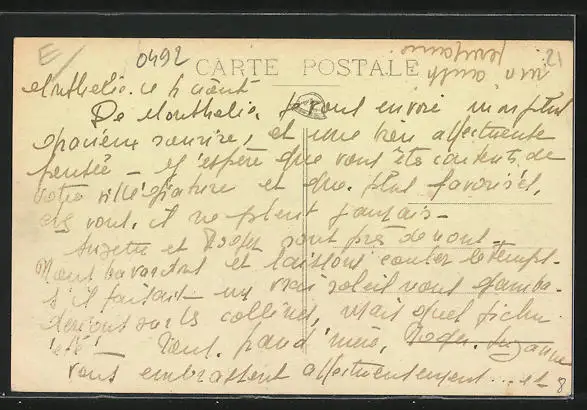 0492
21
CARTE POSTALE
Monthelie. ce 4 août
De Monthelie, je vous envoie mon plus
gracieux sourire, et une bien affectueuse
pensée — J'espère que vous êtes contents de
votre villégiature et que, plus favorisés,
vous, il ne pleut jamais —
Suzette et Roger sont près de nous —
Nous bavardons et laissons couler le temps —
S'il faisait un vrai soleil nous gamba-
derions sur les collines, mais quel fichu
été — Tous, grand'mère, Roger, Suzanne
vous embrassent affectueusement ... et
8